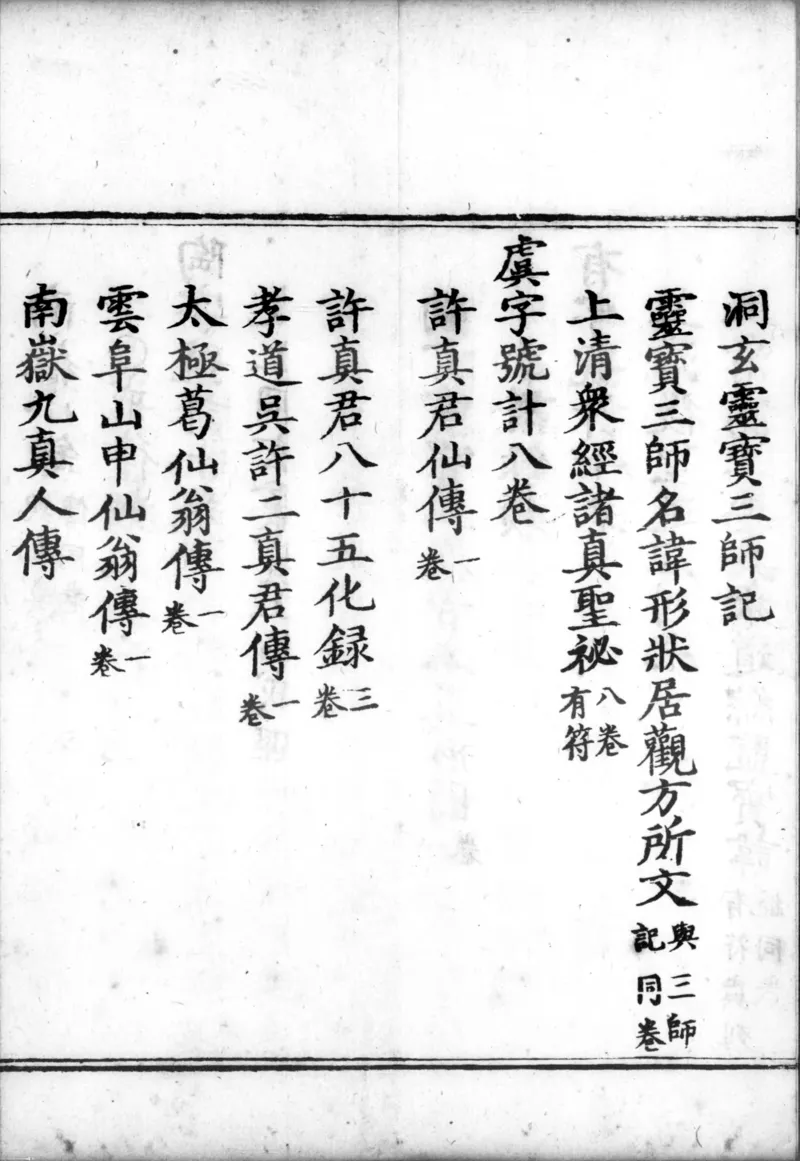 洞玄靈寶三師記
靈寶三師名諱形狀居觀方所文與三師記同卷
上清衆經諸真聖祕八卷有符
虞字號計八卷
許真君仙傳一卷
許真君八十五化録三卷
孝道吳許二真君傳一卷
太極葛仙翁傳一卷
雲阜山申仙翁傳一卷
南嶽九真人傳